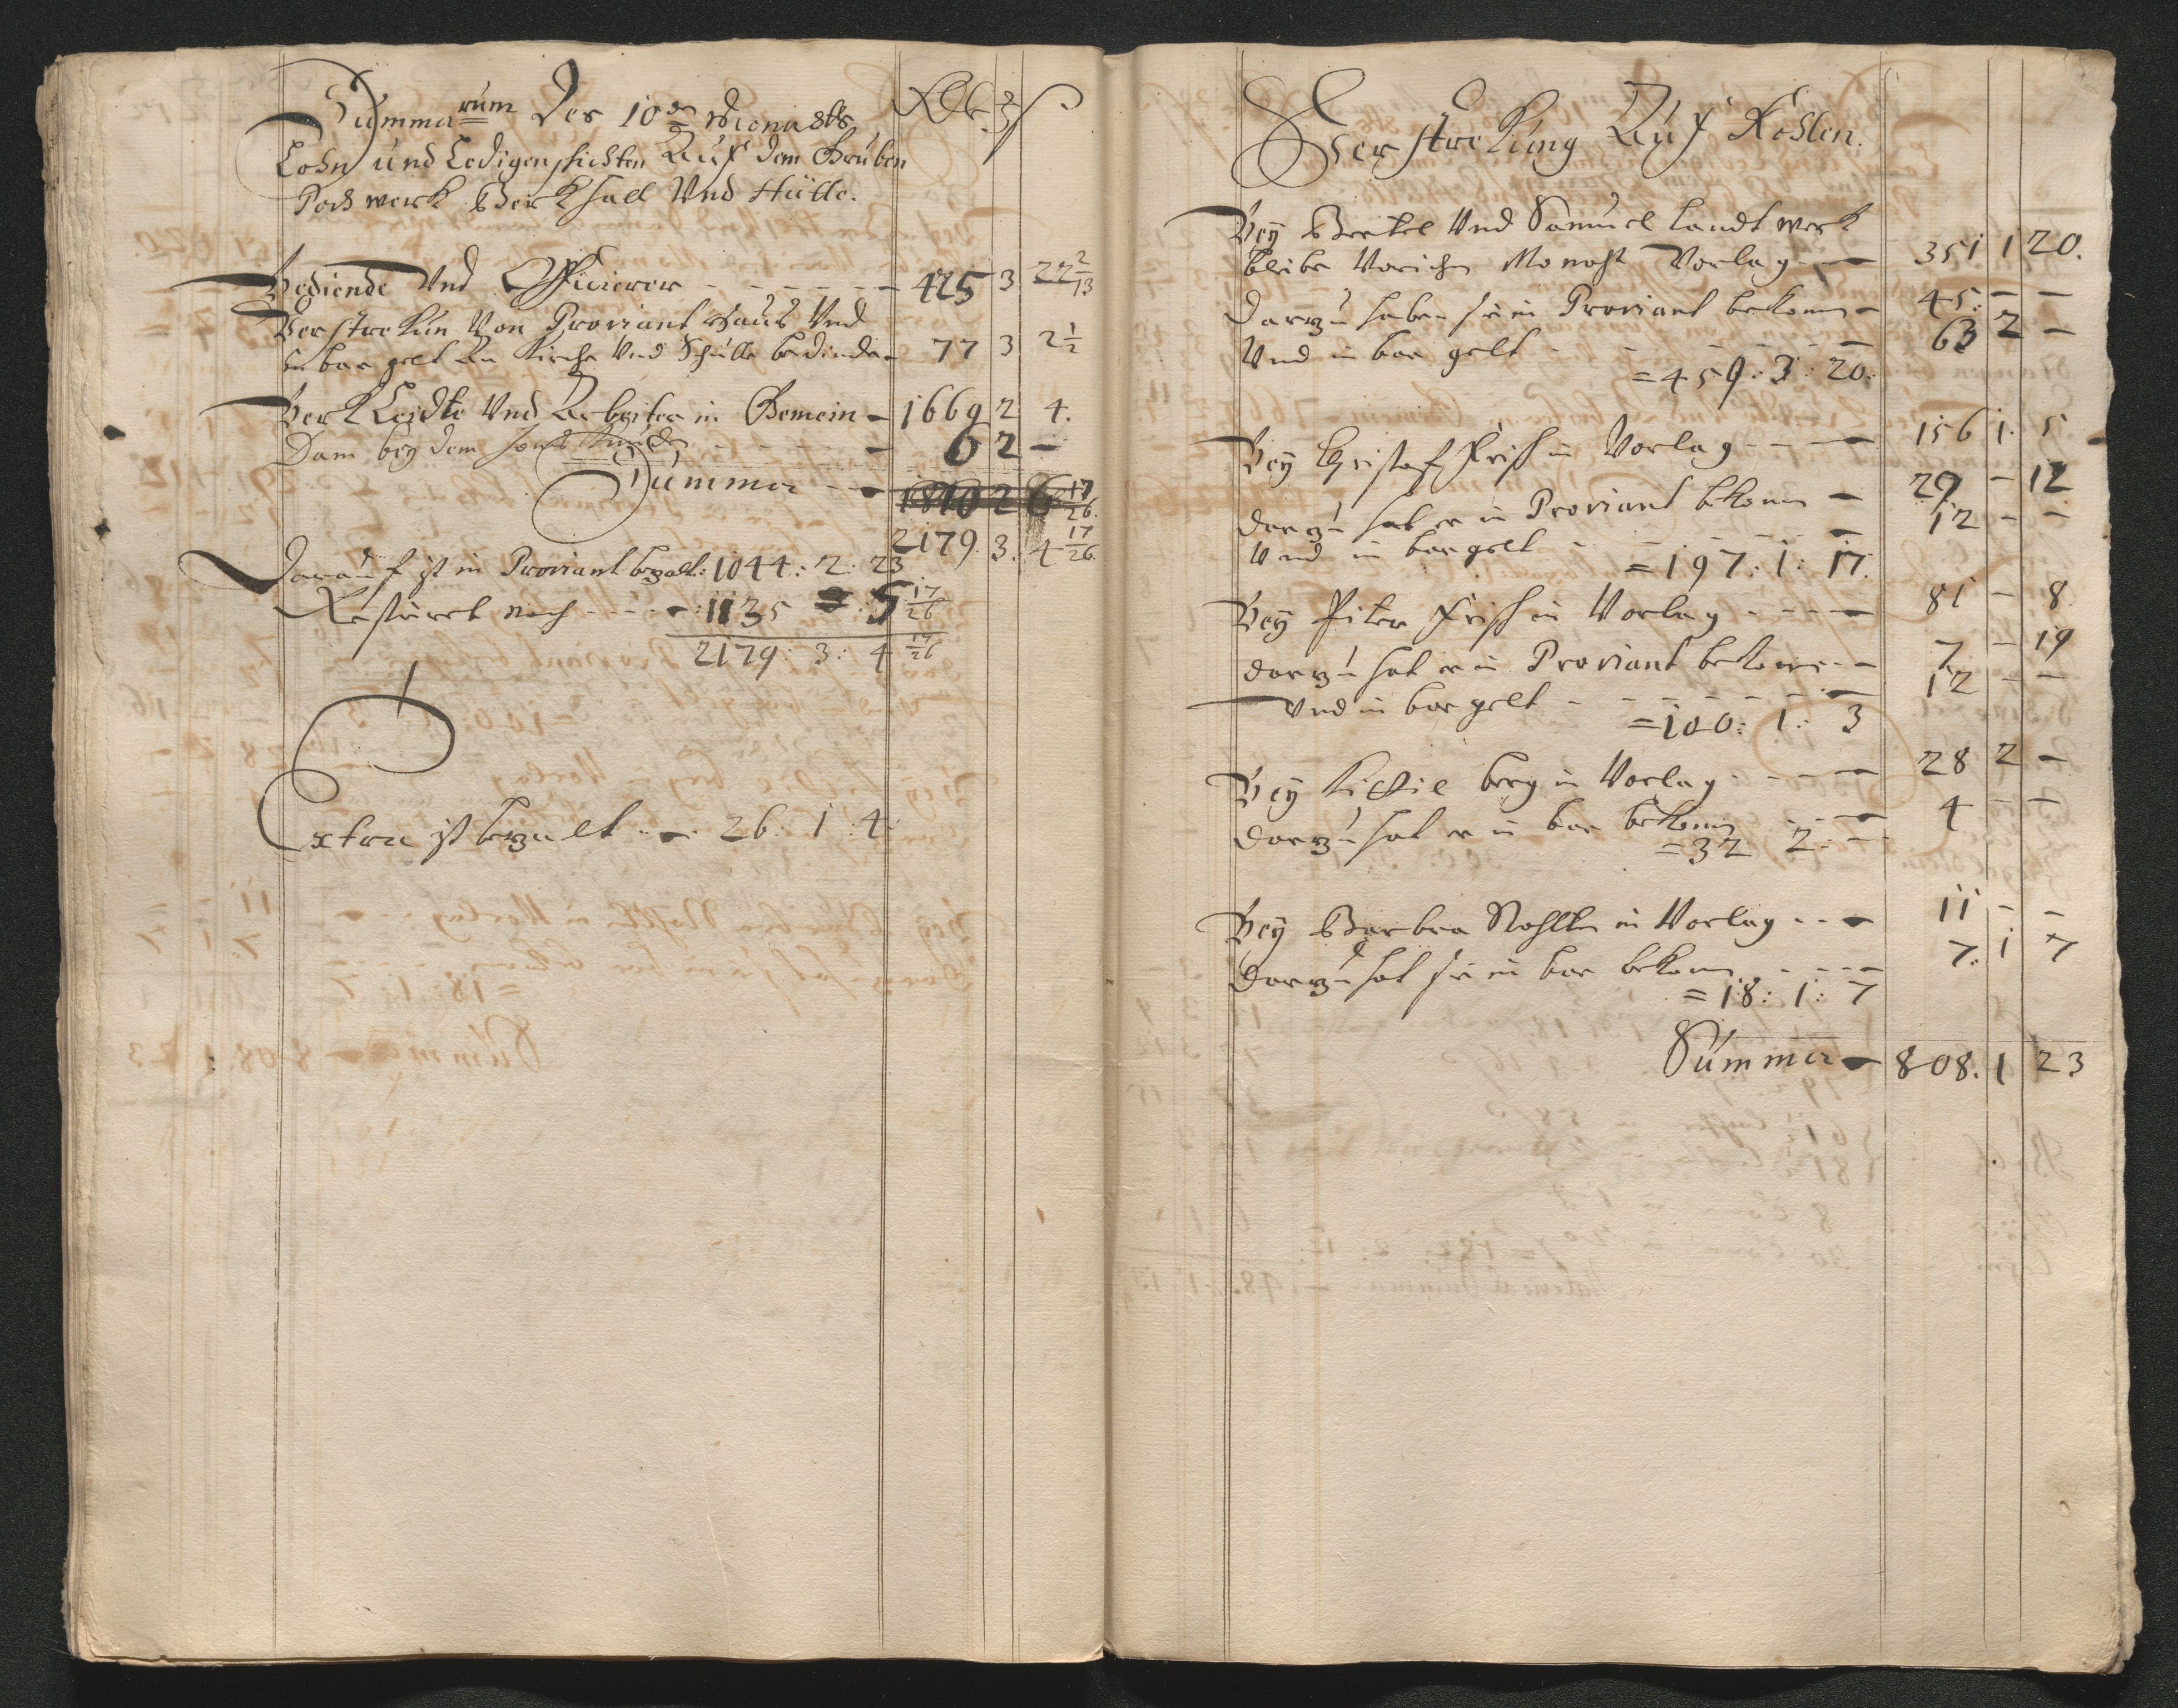 Summarum Des 10den Monahts Rdr
Lohn und Ledigenschichten Auf dem Gruben
Poch werk Berkhall Und Hütte.
Bediende Und Officierer - - - - - - 425 3 22 2/13
Verstrekun Von Proviant Haus Und
in bar gelt An Kirche Und Schulle bedinden 77 3 2 1/2
Berk Leudte Und Arbeiter in Gemein - 1669 2 4.
Dam bey dem - - - - - - 6 2 -
Summa - - 2 6 17/26.
2179. 3. 4 17/26
Darauf ist in Proviant bezalt: 1044: 2: 23
Restirret noch - - - - : 1135 5 17/26
2179: 3: 4 17/26
Extra ist bezalt - - 26: 1: 4:
Verstrekung Auf Kohlen.
Bey Bertel Und Samuel landt werk
blibe Vorichen Monaht Vorlag - - 351 1 20.
Darzu haben sie in Proviant bekomen - 45: - -
Und in bar gelt - - - - - - 63 2 -
= 459: 3: 20:
Bey Christof Frish in Vorlag - - - - 156 1. 5
darzu hat er in Proviant bekomn - 29 - 12
Und in bar gelt - - - - - - 12 - -
= 197: 1: 17.
Bey Piter Frish in Vorlag - - - - 81 - 8
darzu hat er in Proviant bekomen - - 7 - 19
Und in bar gelt - - - - - - 12 - -
= 100: 1: 3
Bey berg in Vorlag - - - - 28 2 -
darzu hat er in bar bekomn - - - 4 - -
= 32 2: -
Bey Barbra in Vorlag - - - 11 - -
Darzu hat sie in bar bekomn - - - - 7. 1 7
= 18: 1: 7
Summa - 808. 1 23